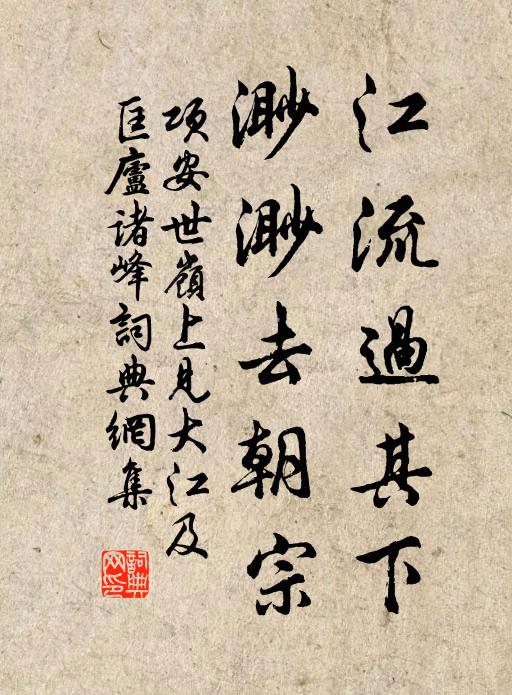 江流過其下
渺渺去朝宗
項安世嶺上見大江及
匡廬诸峰詞典網集
詞典
网印